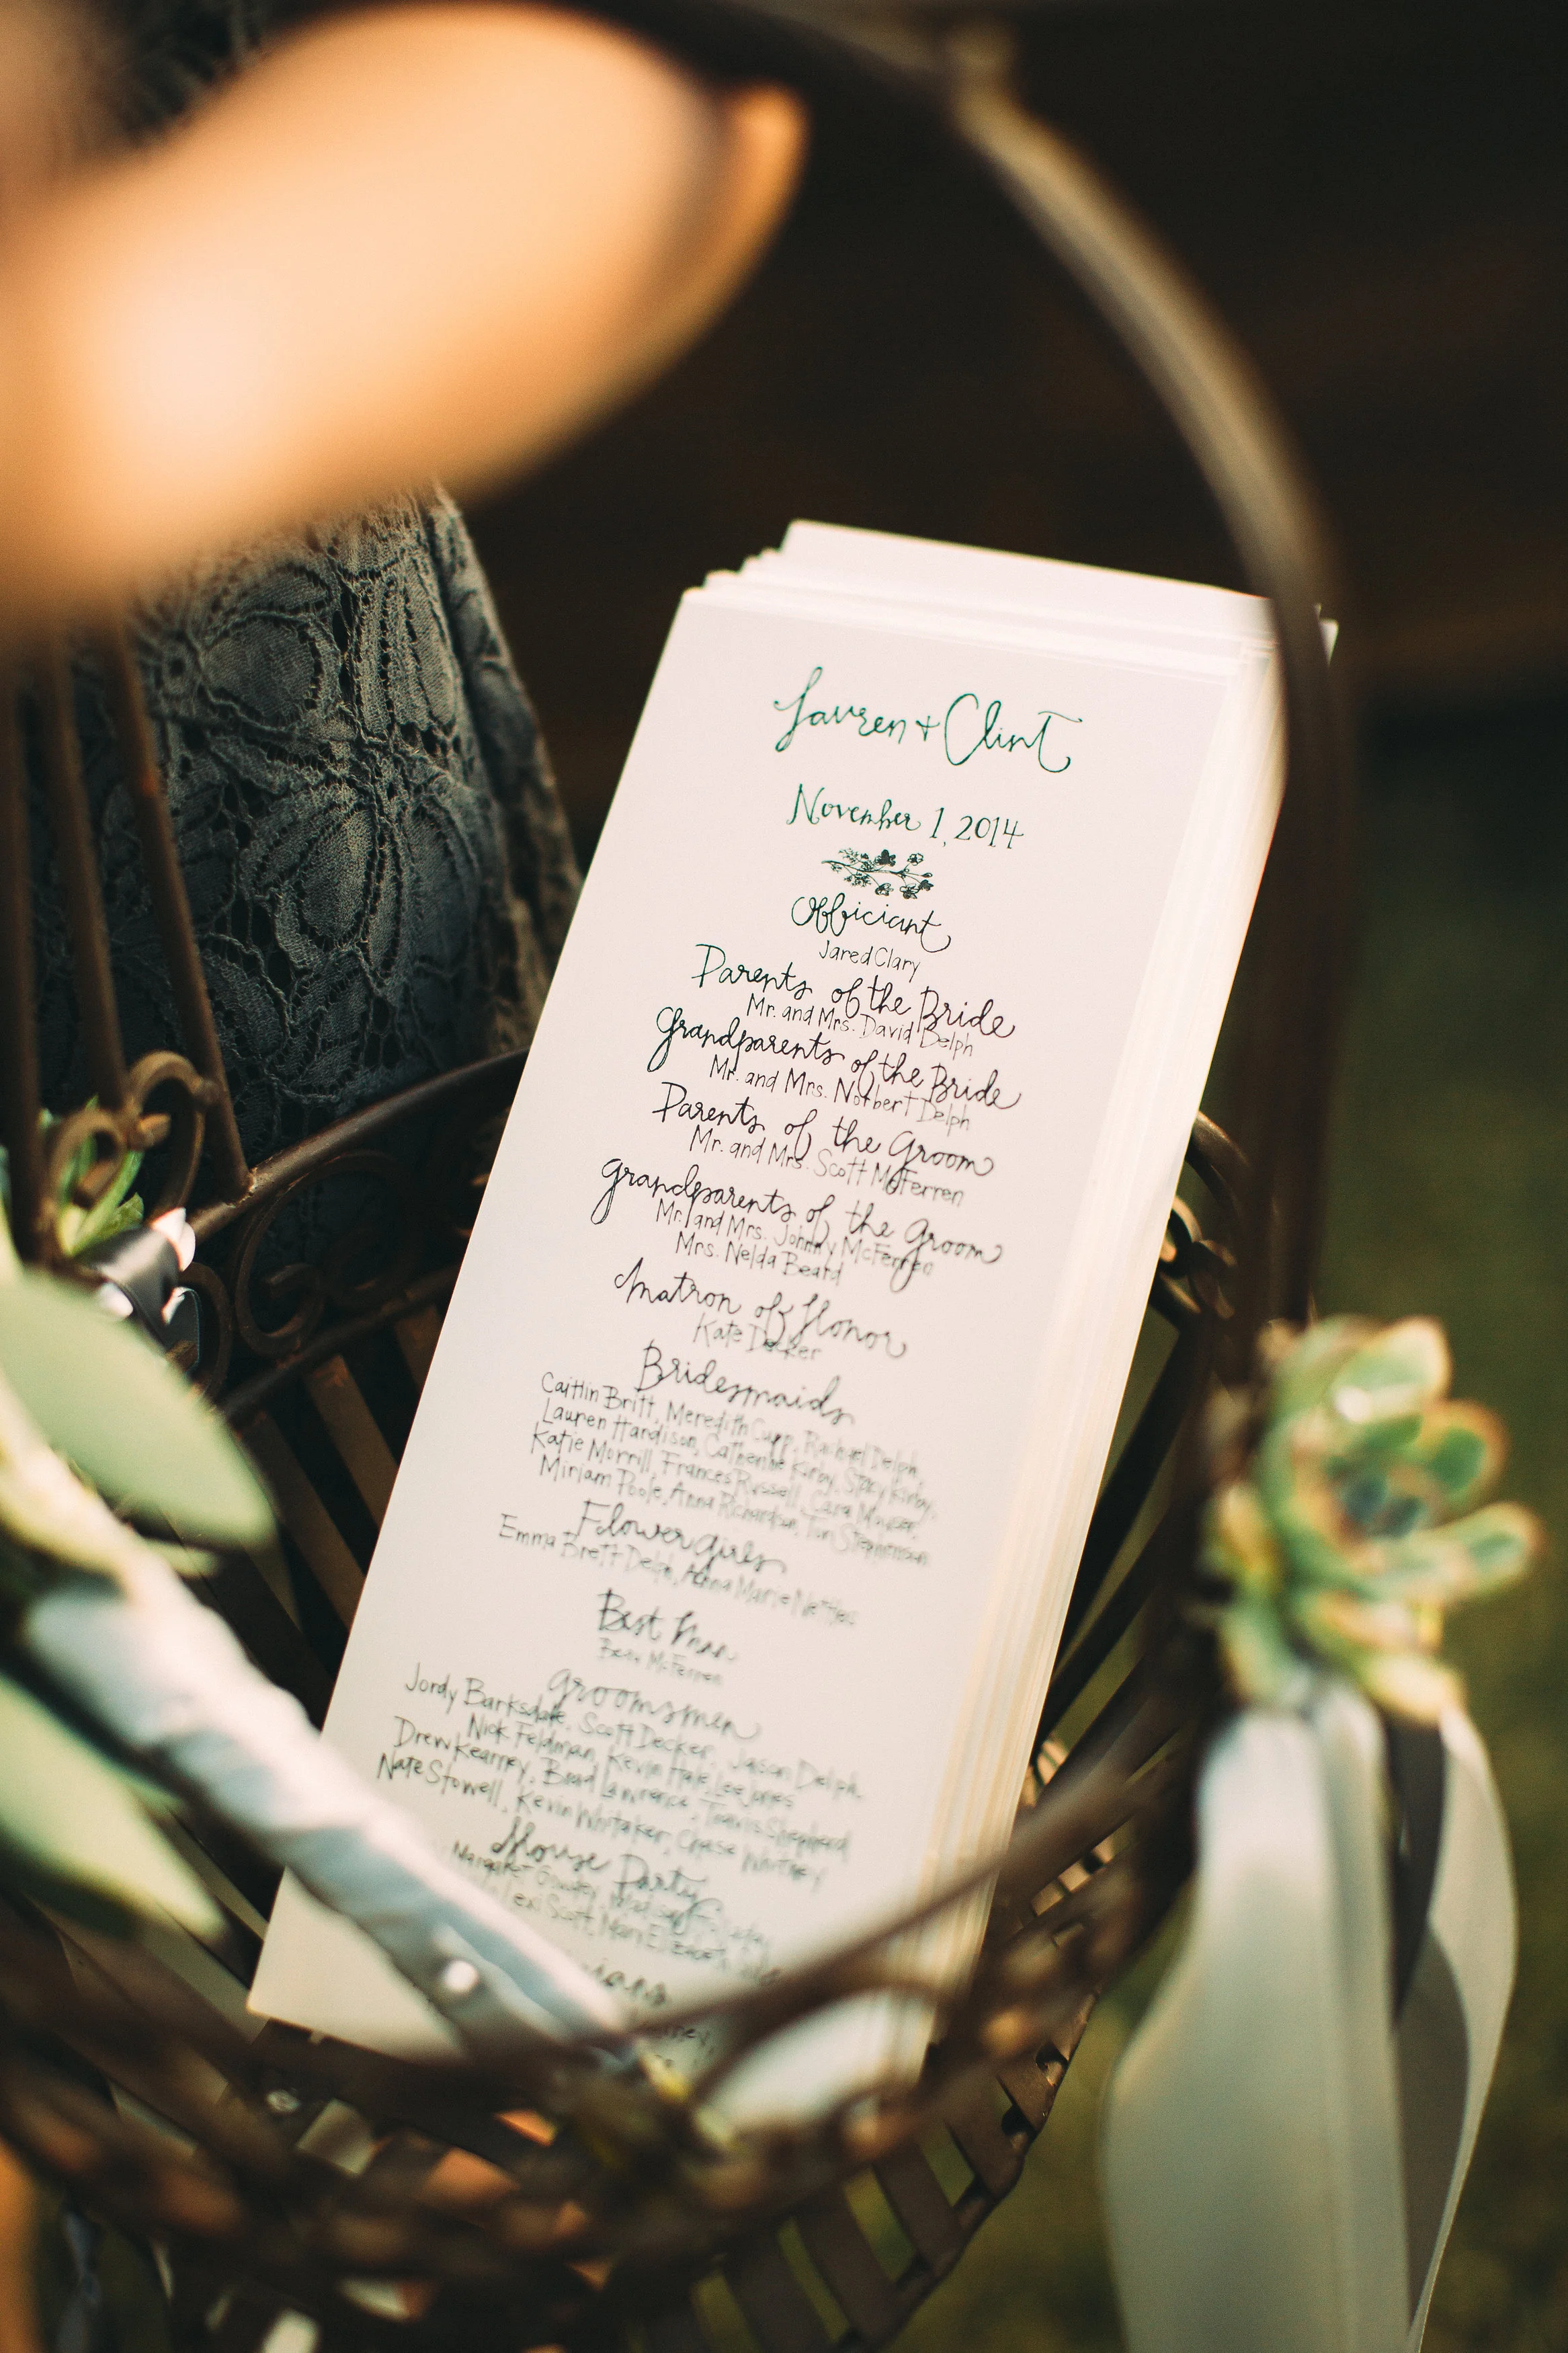 Lauren + Clint
November 1, 2014
Officiant
Jared Clary
Parents of the Bride
Mr. and Mrs. David Delph
Grandparents of the Bride
Mr. and Mrs. Norbert Delph
Parents of the Groom
Mr. and Mrs. Scott McFerren
Grandparents of the Groom
Mr. and Mrs. Johnny McFerren
Mrs. Nelda Beard
Matron of Honor
Kate Decker
Bridesmaids
Caitlin Britt, Meredith Cupp, Rachael Delph,
Lauren Hardison, Catherine Kirby, Stacy Kirby,
Katie Morrill, Frances Russell, Cara
Miriam Poole, Anna Richardson, Tori Stephenson
Flower girls
Emma Brett Delph, Anna Marie Nettles
Best Man
McFerren
Groomsmen
Jordy Barksdale, Scott Decker, Jason Delph,
Nick Feldman, Kevin Hale, Lee Jones
Drew Kearney, Brad Lawrence, Travis Shepherd
Nate Stowell, Kevin Whitaker, Chase Whitney
House Party
Margaret
Lexi Scott, Mary Elizabeth